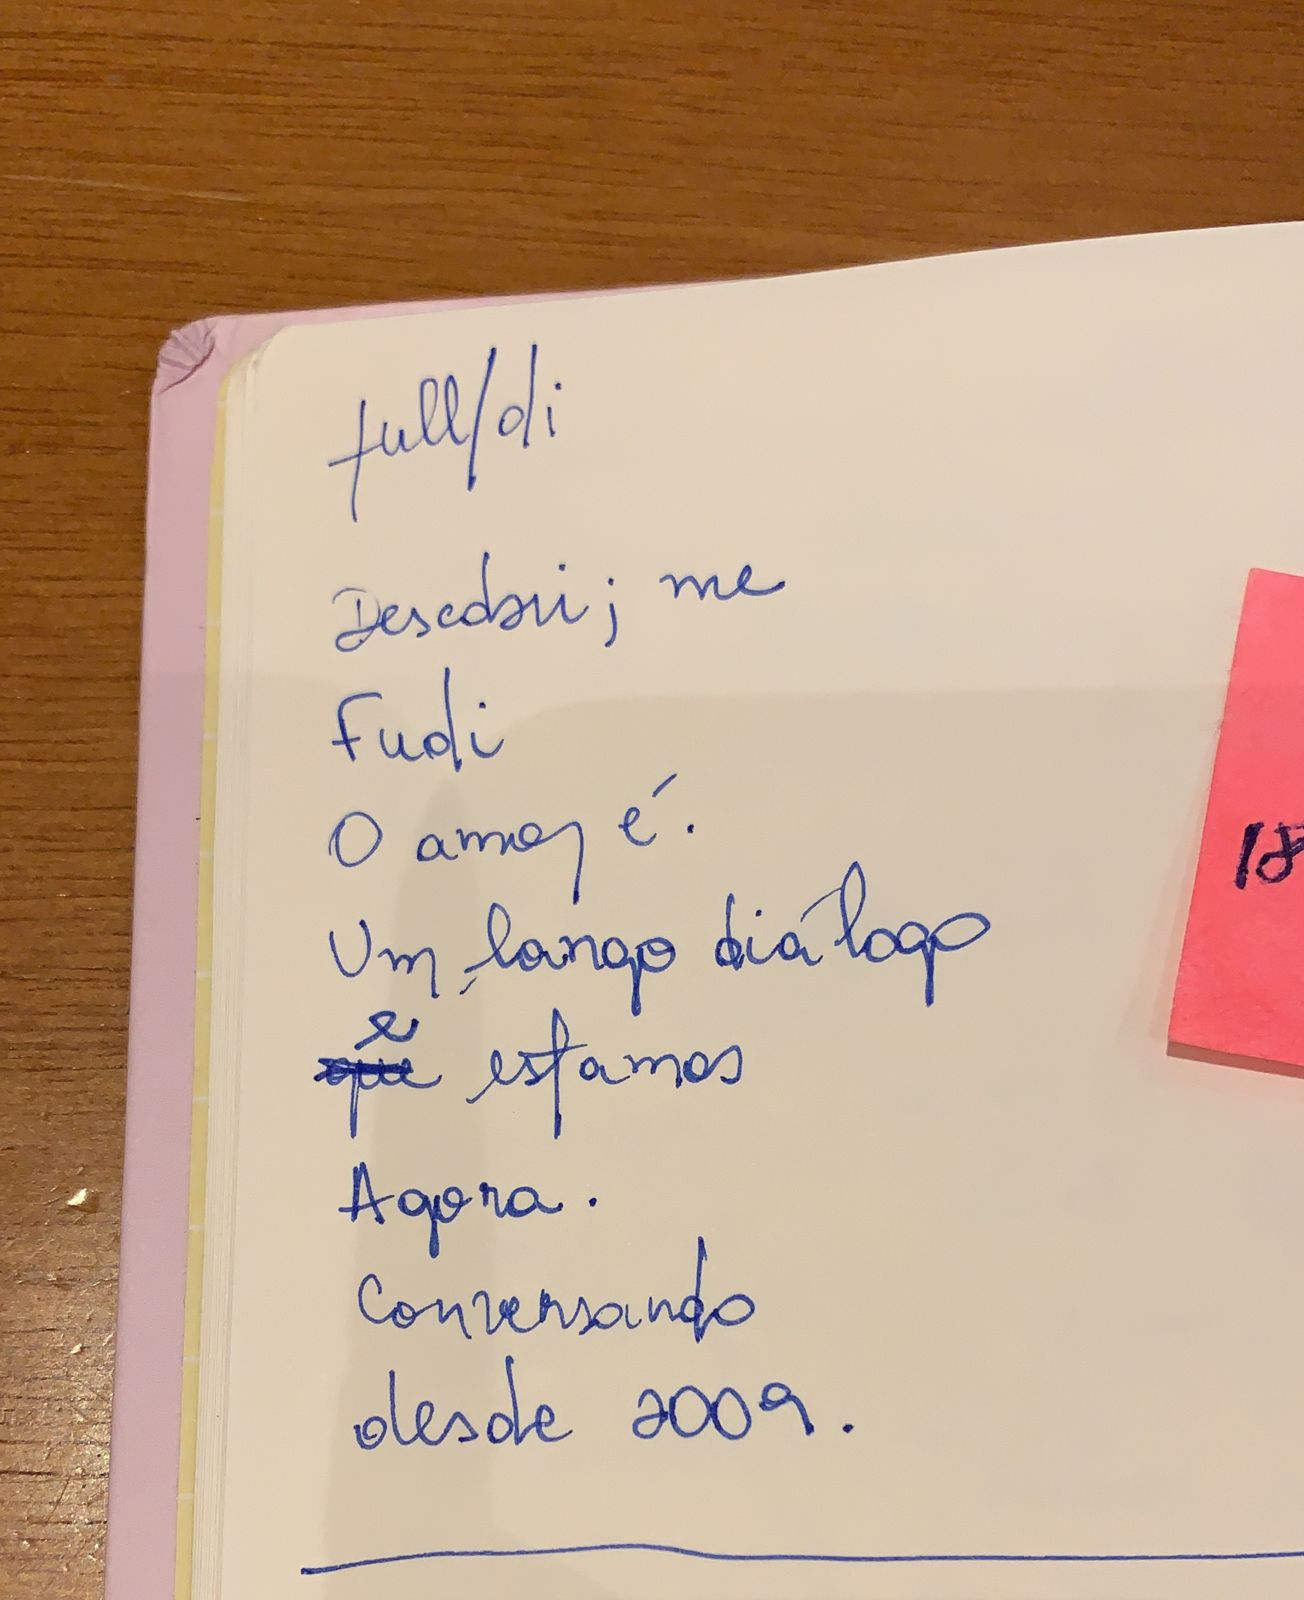 full/di
Descobri; me
Fudi
O amor é.
Um longo diálogo
e estamos
Agora.
Conversando
desde 2009.
18